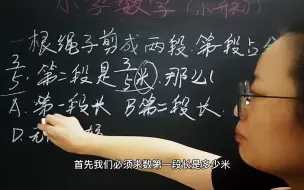 小学数学(小升初)
一根绳子剪成两段.第一段占全
3/5.第二段是3/5米.那么(
A.第一段长 B第二段长.
D.无
首先我们必须求数第一段长是多少米